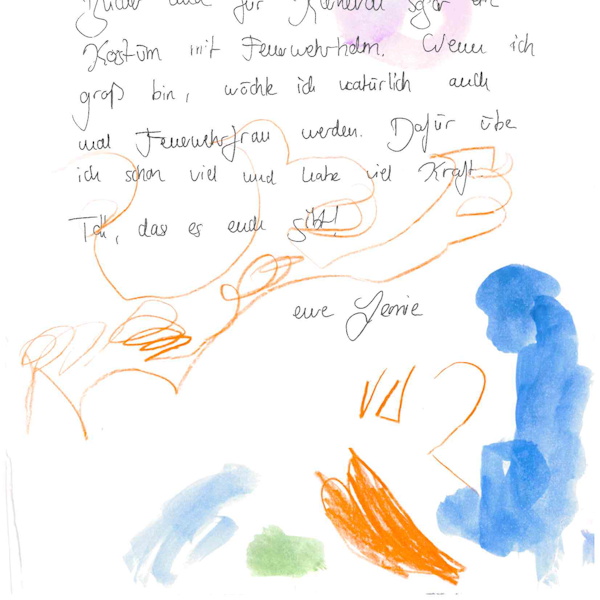 Bücher und für Karneval sogar ein
Kostüm mit Feuerwehrhelm. Wenn ich
groß bin, möchte ich natürlich auch
mal Feuerwehrfrau werden. Dafür übe
ich schon viel und habe viel Kraft
Toll, das es euch gibt!
eure